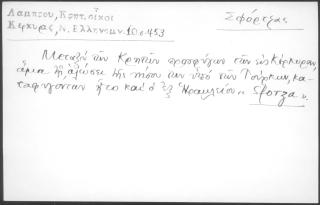 Λαμπρου, Κρητ. οἶκοι
Κερκυρας, Ν. Ελληνομν. 10. σ. 453
Σφόρτζας
Μεταξύ τῶν Κρητῶν προσφύγων τῶν εἰς Κέρκυραν,
ἅμα τῇ ἁλώσει τῆς νήσου των ὑπό τῶν Τούρκων, κα-
ταφυγόντων ἦτο καὶ ὁ ἐξ Ἡρακλείου « Sforza ».